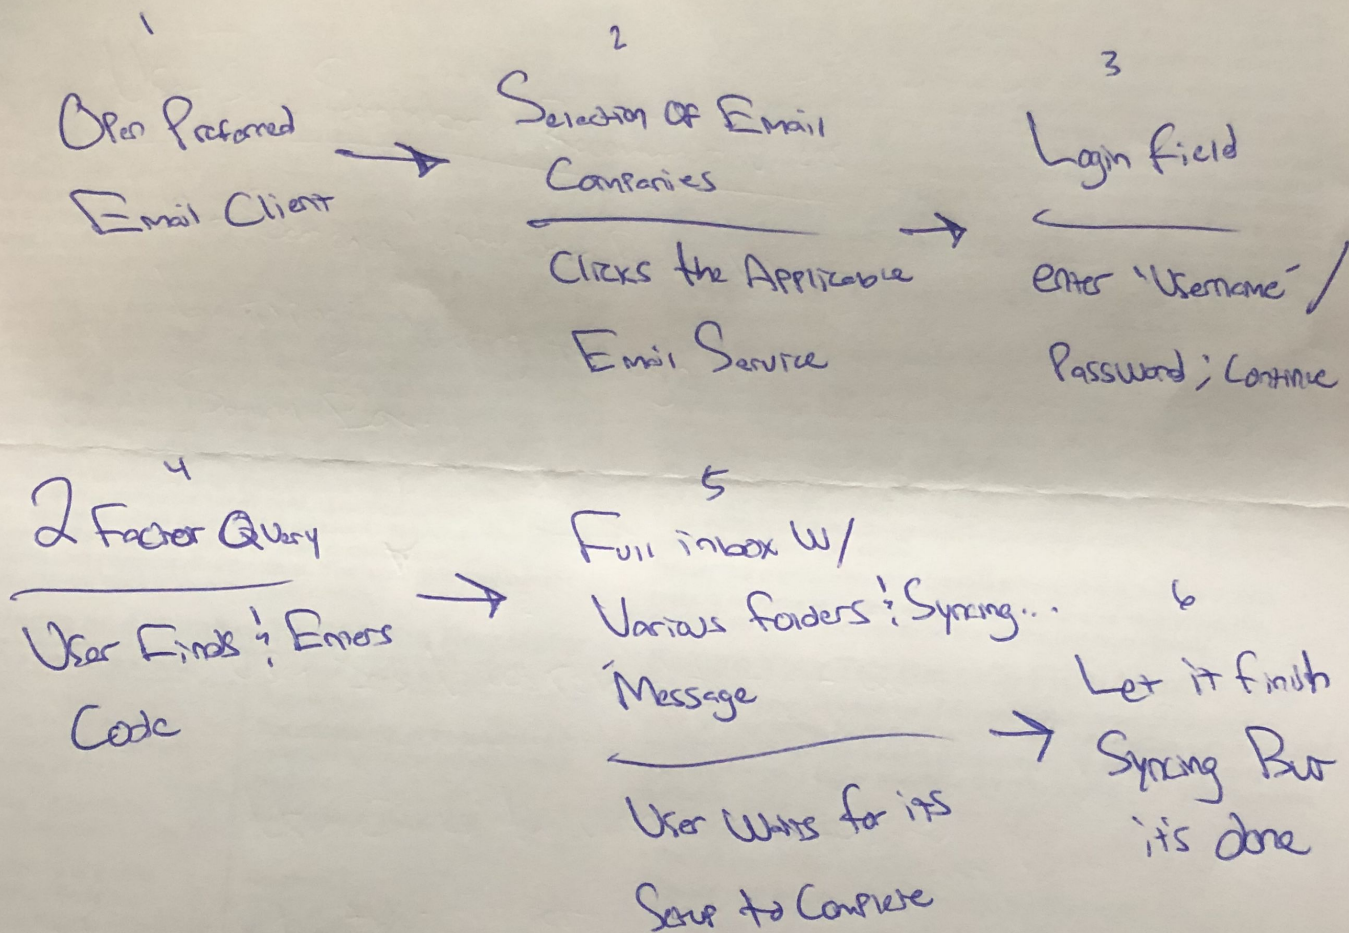 1
Open Preferred
Email Client
2
Selection Of Email
Companies
Clicks the Applicable
Email Service
3
Login field
enter "Username" /
Password; Continue
4
2 Factor Query
User Finds & Enters
Code
5
Full inbox w/
Various folders & Syncing...
Message
User Waits for its
Setup to Complete
6
Let it finish
Syncing But
it's done